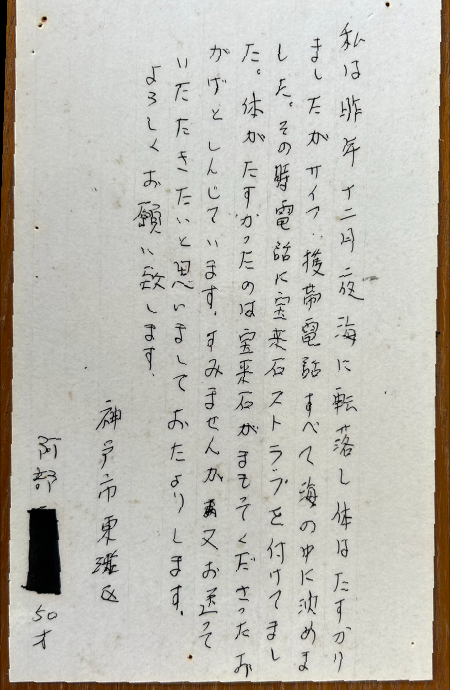 私は昨年十二月夜海に転落し体はたすかり
ましたがサイフ、携帯電話すべて海の中に沈めま
した。その時電話に宝来石ストラップを付けてまし
た。体がたすかったのは宝来石がまもってくださったお
かげとしんじています。すみませんが又お送って
いただきたいと思いましておたよりします。
よろしくお願い致します。
神戸市東灘区
阿部
50才